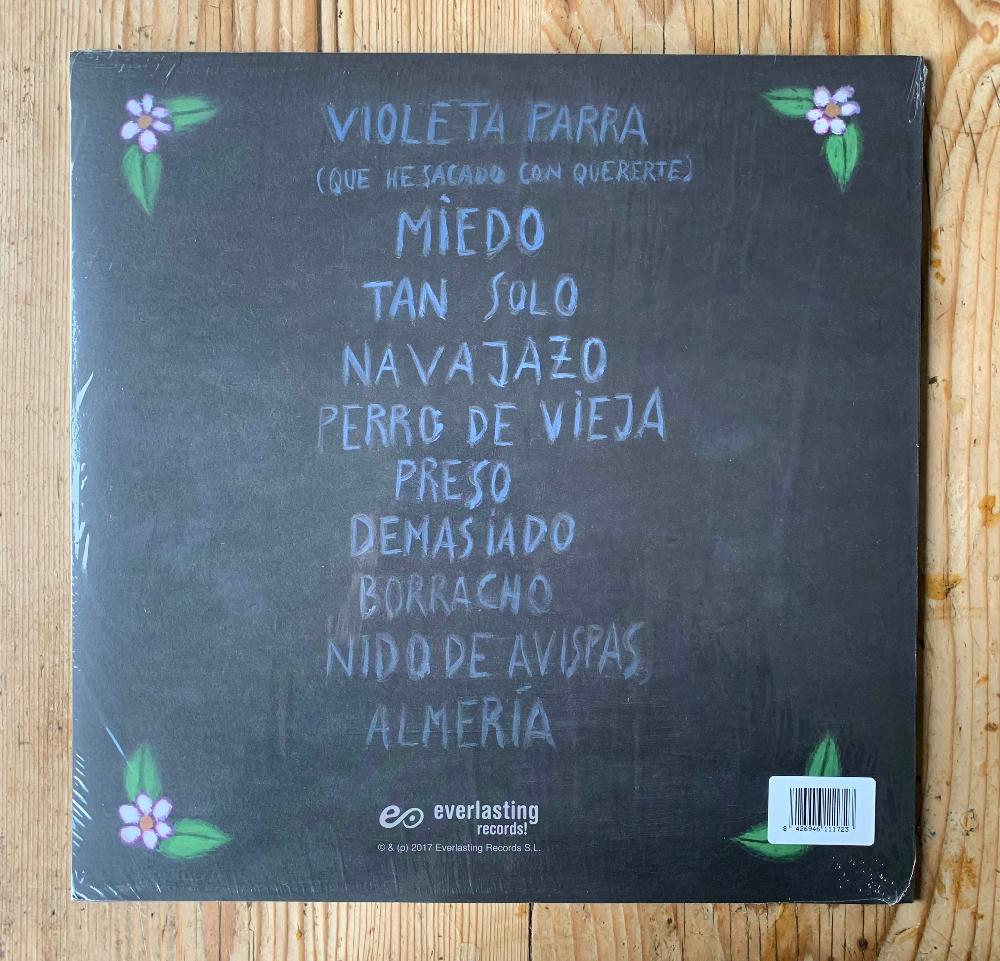 VIOLETA PARRA
(QUE HE SACADO CON QUERERTE)
MIEDO
TAN SOLO
NAVAJAZO
PERRO DE VIEJA
PRESO
DEMASIADO
BORRACHO
NIDO DE AVISPAS
ALMERÍA
everlasting
records!
© & (p) 2017 Everlasting Records S.L.
8 426946 111723